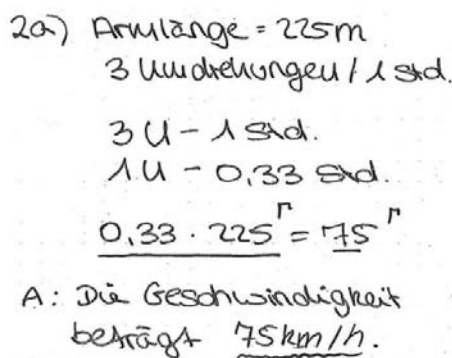 2a) Armlänge = 225m
3 Umdrehungen / 1 Std.
3 U - 1 Std.
1 U - 0,33 Std.
0,33 · 225 = 75
A: Die Geschwindigkeit
beträgt 75km/h.